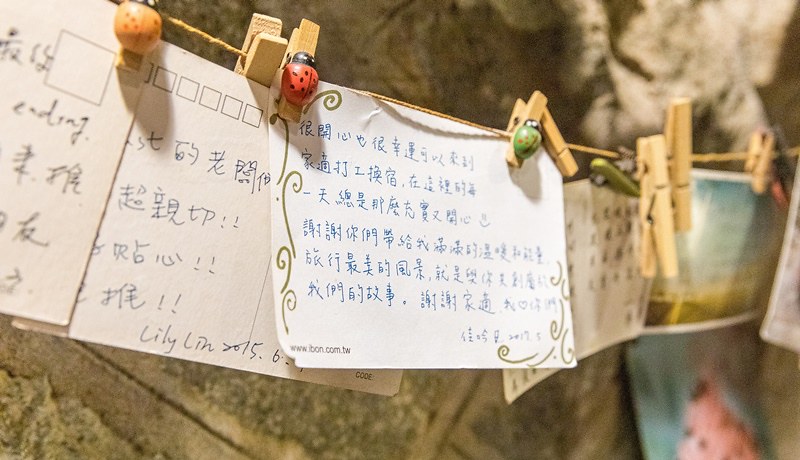 最後
ending.
推
朋友
的老闆
超親切!!
貼心!!
推!!
Lily Lin 2015.6.
CODE:
很開心也很幸運可以來到
家適打工換宿,在這裡的每
一天總是那麼充實又開心
謝謝你們帶給我滿滿的溫暖和能量,
旅行最美的風景,就是與你共創屬於
我們的故事。謝謝家適,我♡你們
佳吟 2017.5
www.ibon.com.tw